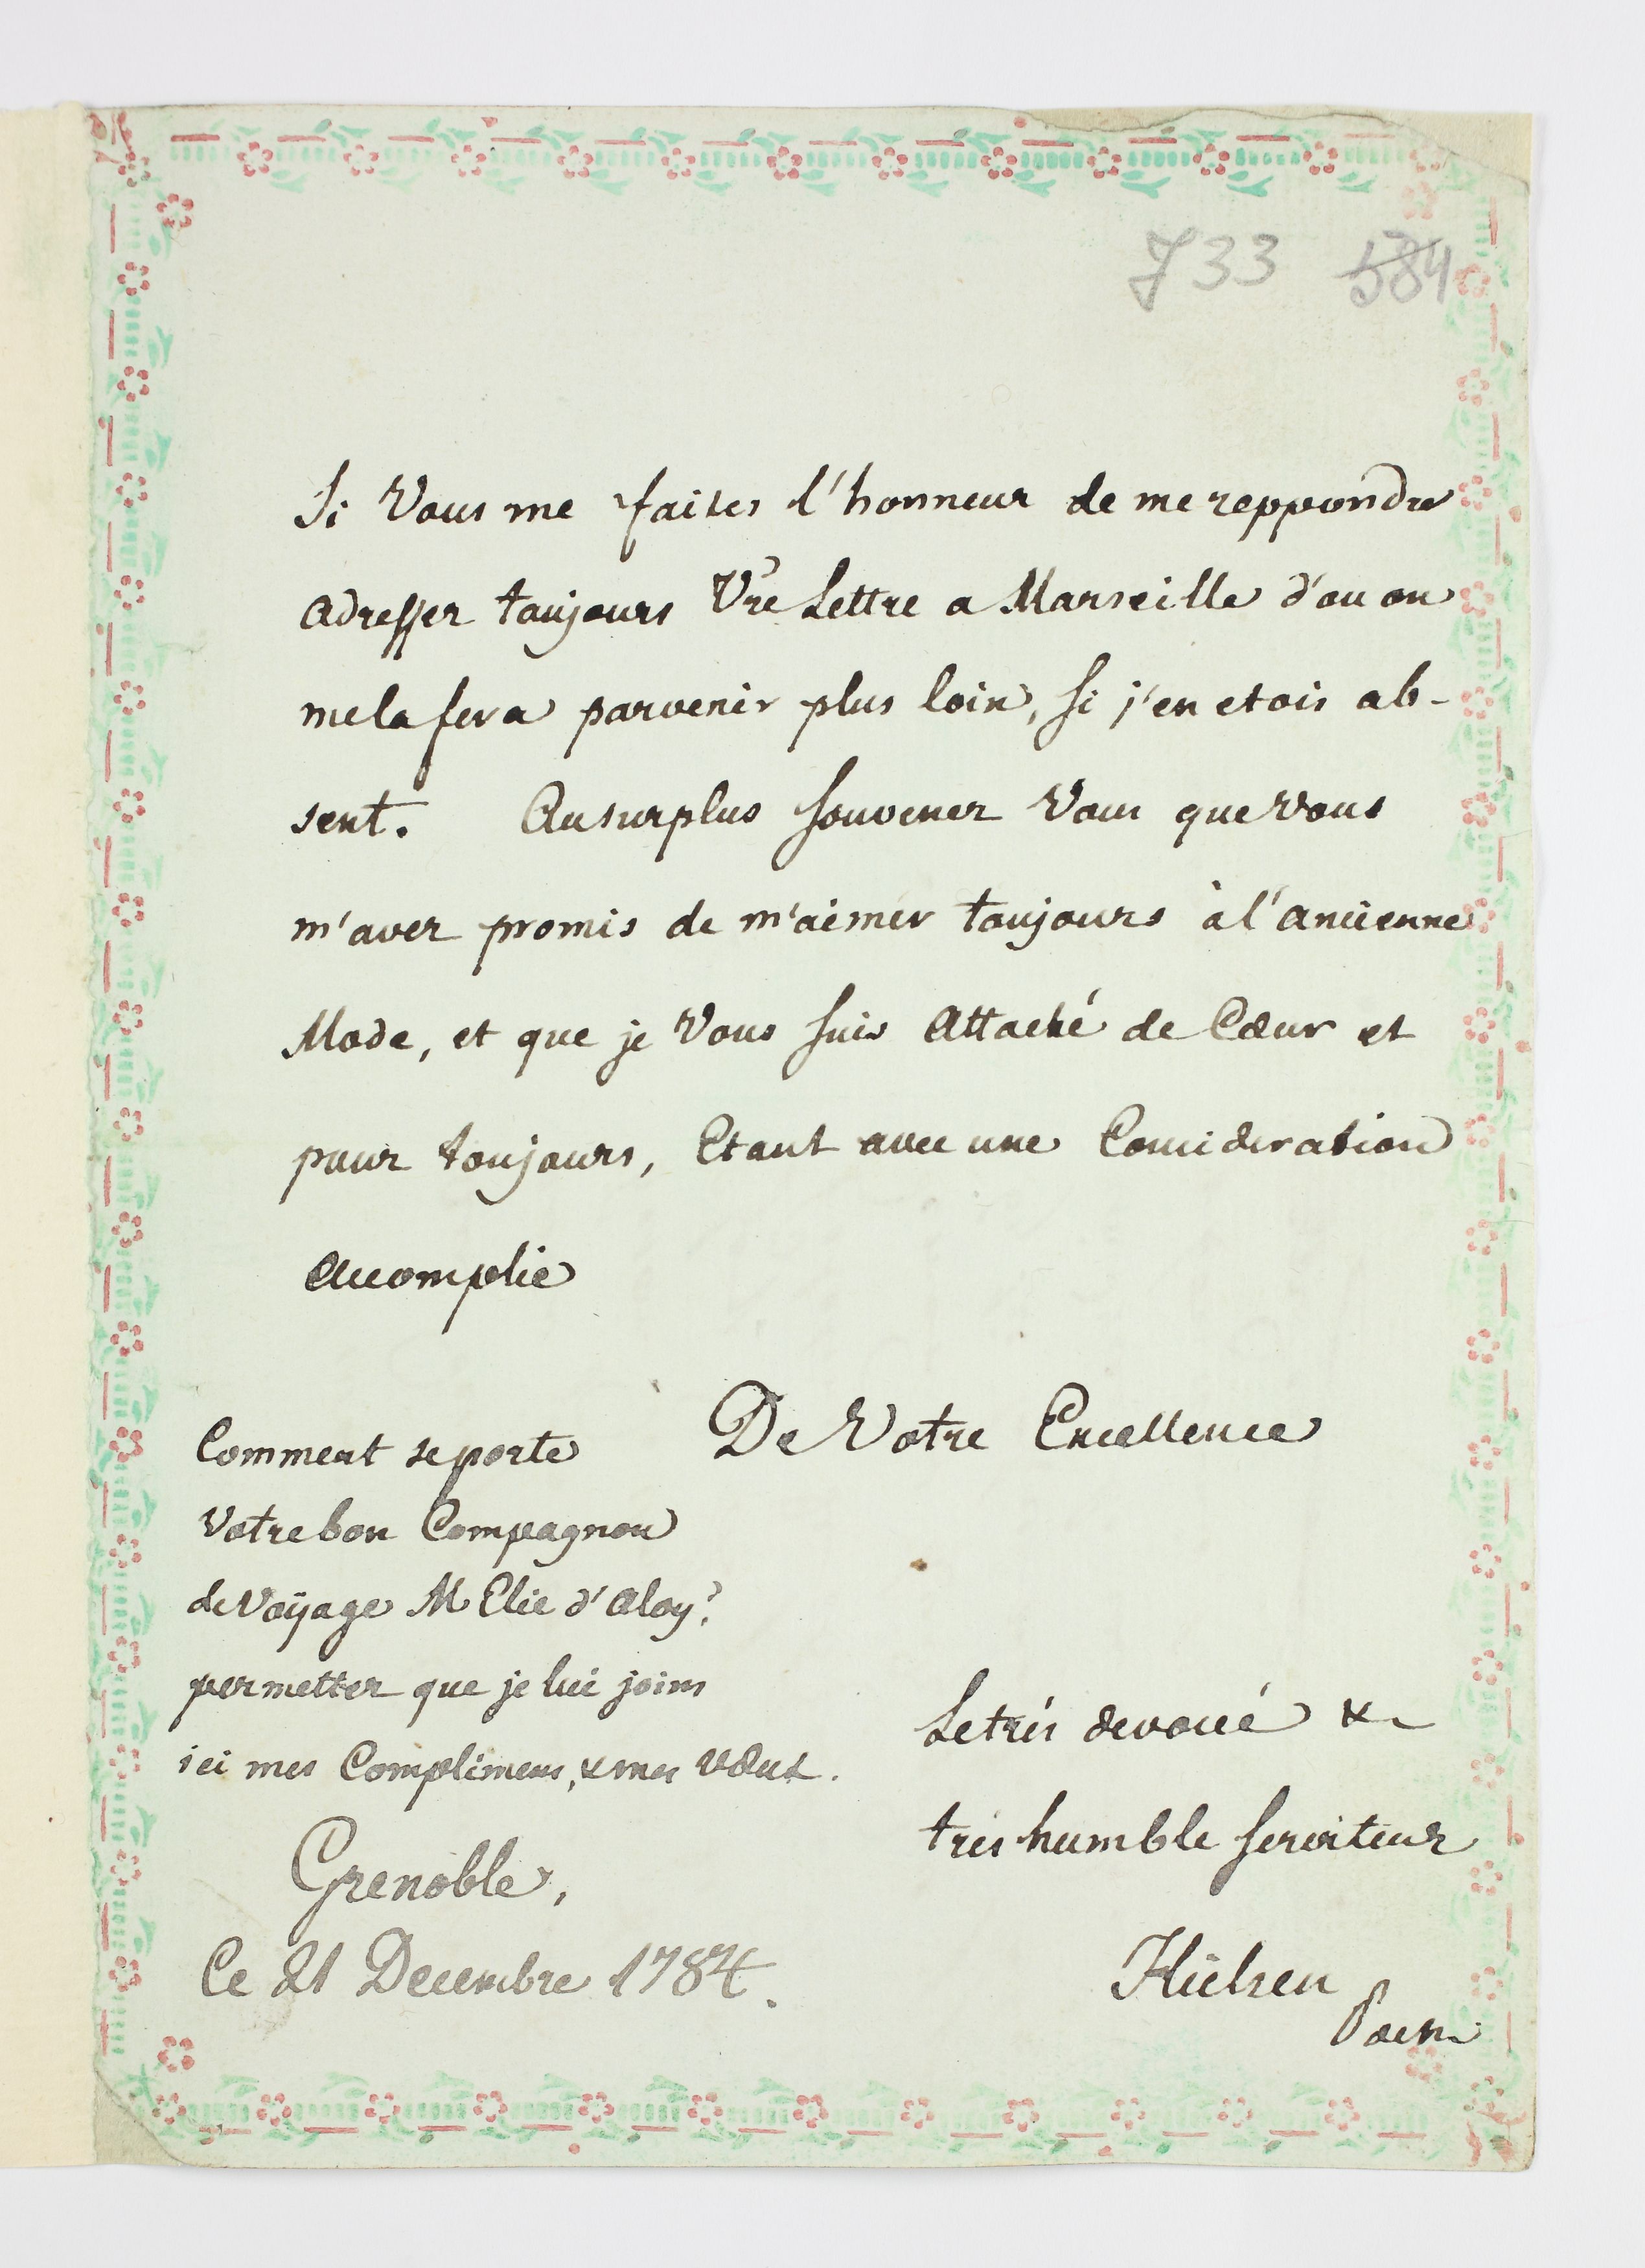 733 584
Si Vous me faites l'honneur de me reppondre
adresser toujours Vre Lettre a Marseille d'ou on
me la fera parvenir plus loin, si j'en etois ab-
sent. Au surplus souvener Vous que vous
m'aver promis de m'aimer toujours à l'ancienne
Mode, et que je Vous suis Attaché de Cœur et
pour toujours, Etant avec une Consideration
accomplie
De Votre Excellence
Comment se porte
Votre bon Compagnon
de Voÿage M Elie d'Aloy?
permetter que je lui joins
ici mes Complimens, & mes vœux.
Le trés devoué &
tres humble serviteur
Grenoble,
Ce 21 Decembre 1784.
Hülsen